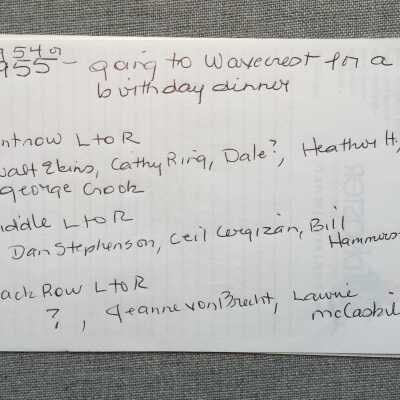 1954 or
1955 - going to Wavecrest for a
birthday dinner
ntrow L to R
Walt Ekins, Cathy Ring, Dale?, Heather H,
george Crook
iddle L to R
Dan Stephenson, Ceil Cergizan, Bill
Hammers
ack Row L to R
?, Jeanne von Brecht, Laurie
McCaskil